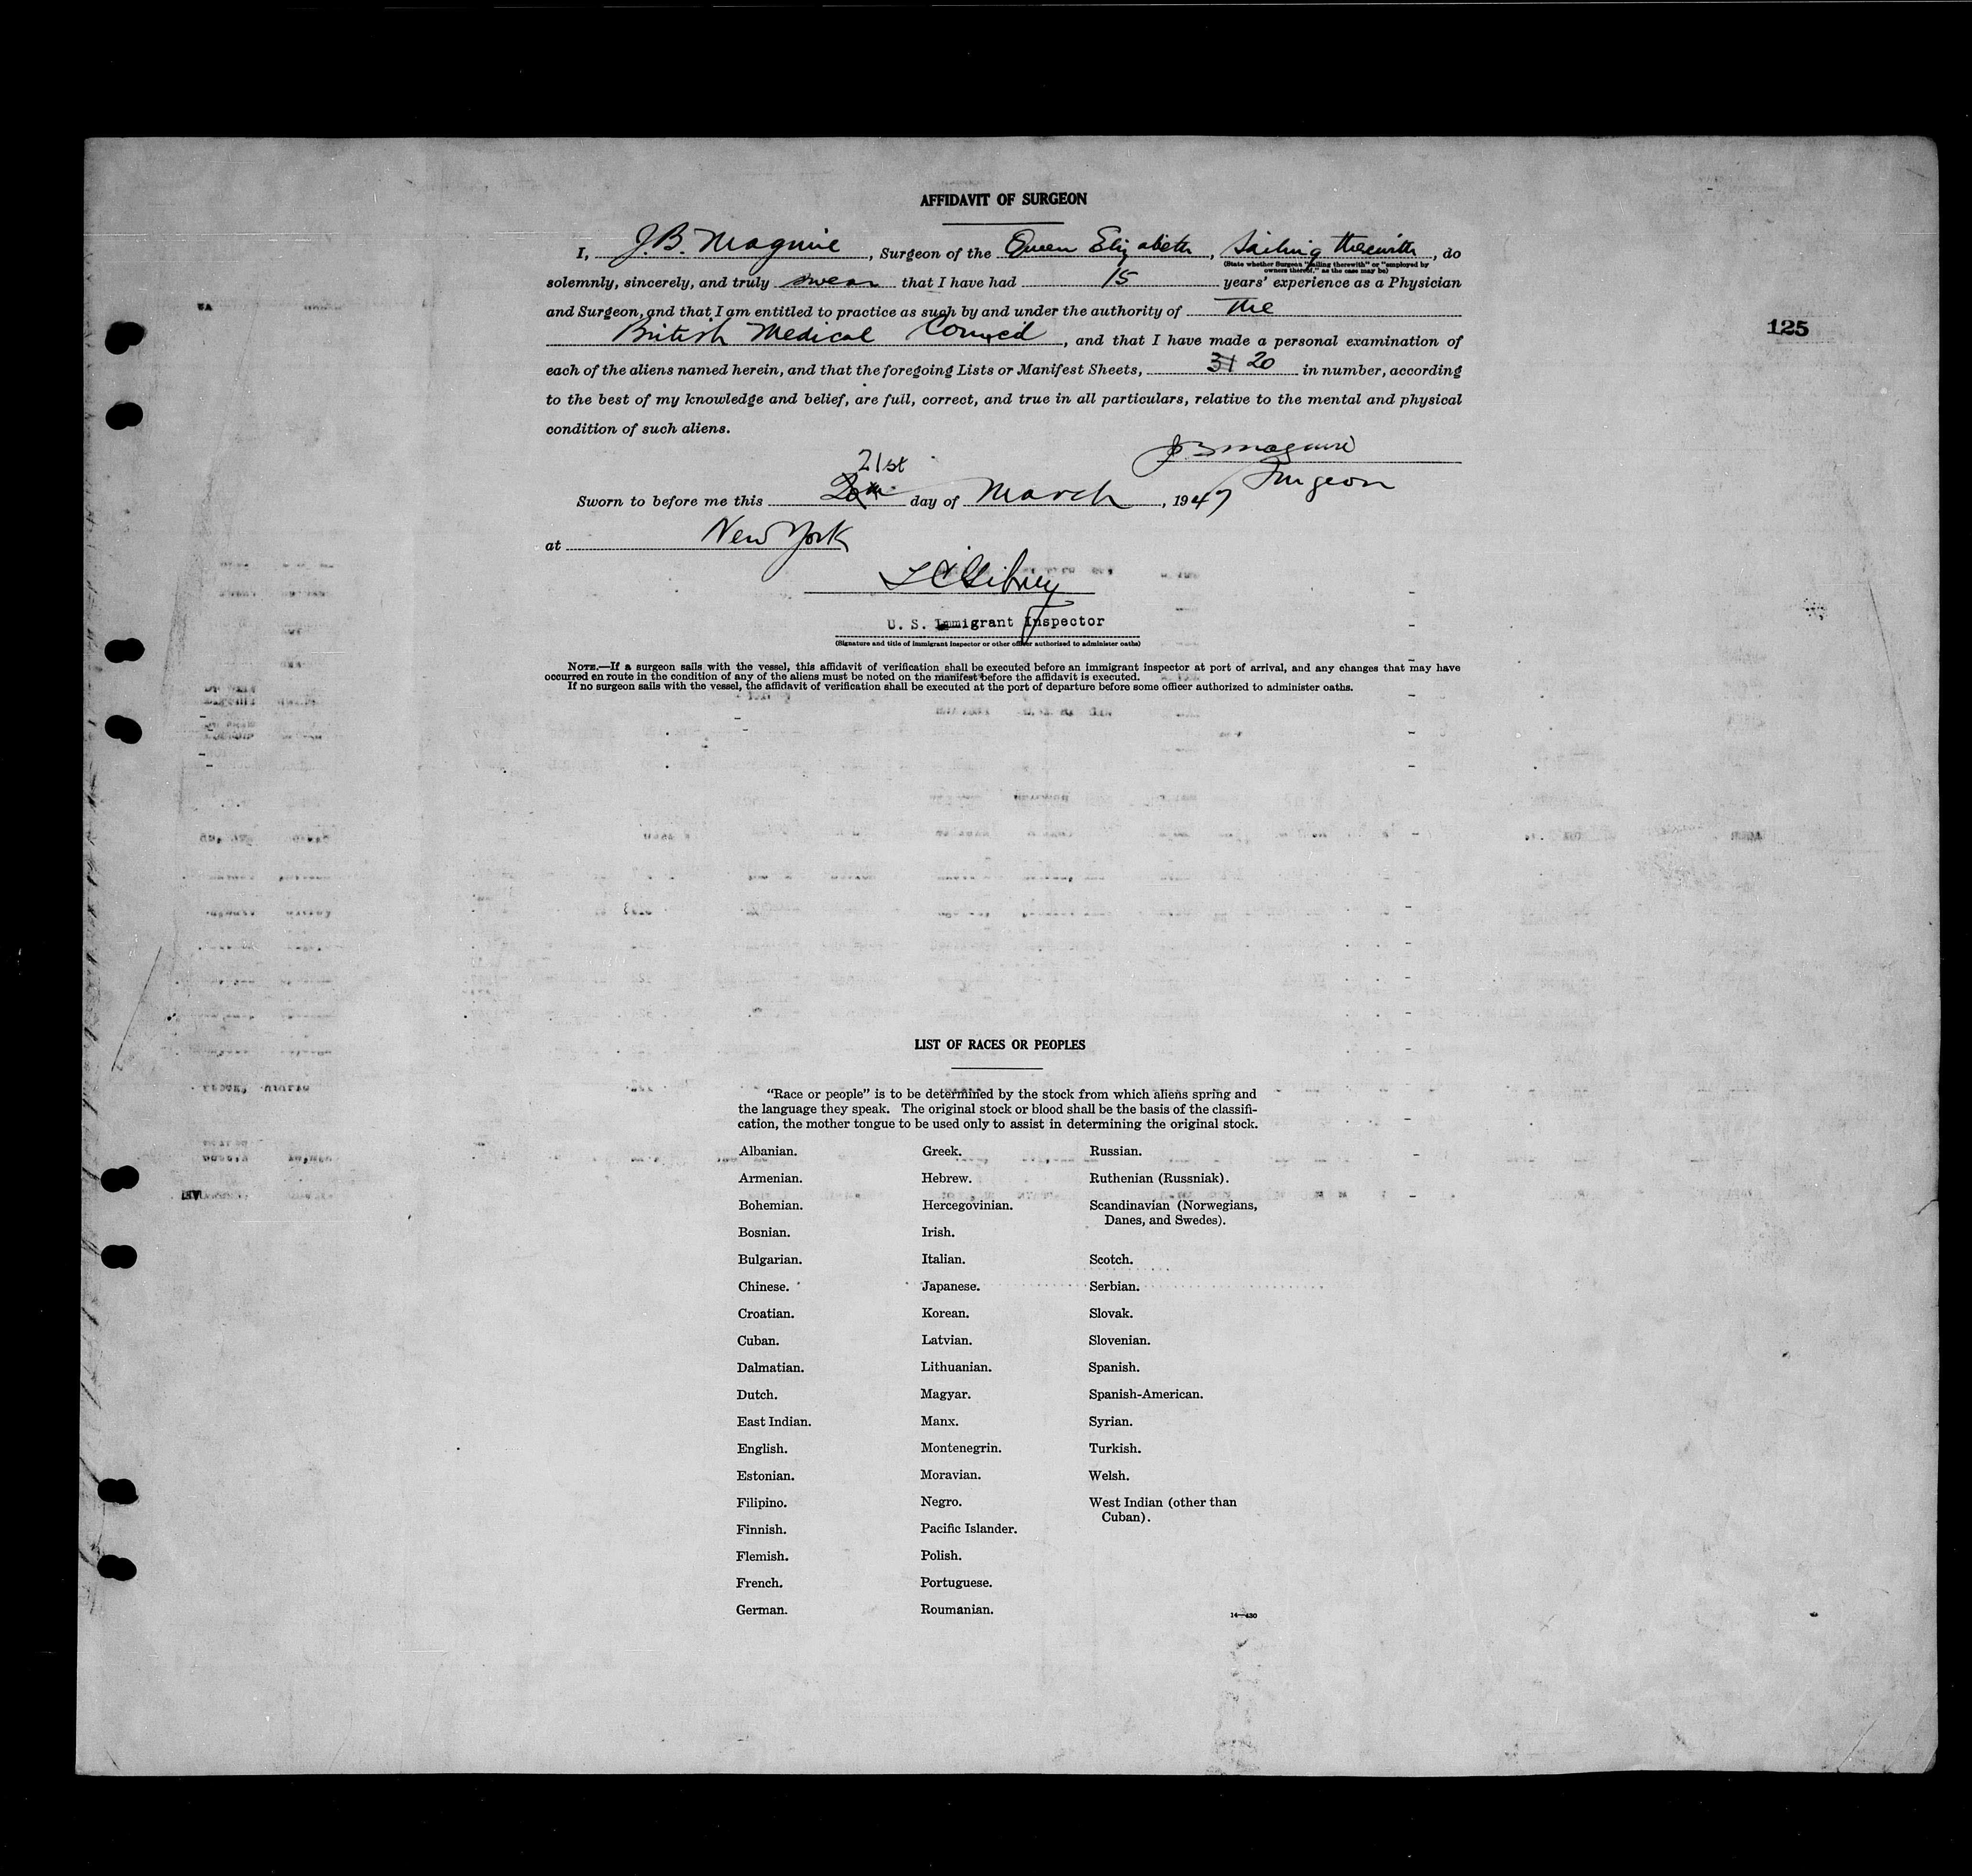 AFFIDAVIT OF SURGEON
I, J.B. Maguire, Surgeon of the Queen Elizabeth, Sailing therewith, do
(State whether Surgeon "sailing therewith" or "employed by
owners thereof," as the case may be)
solemnly, sincerely, and truly swear that I have had 15 years' experience as a Physician
and Surgeon, and that I am entitled to practice as such by and under the authority of The
British Medical Council, and that I have made a personal examination of
125
each of the aliens named herein, and that the foregoing Lists or Manifest Sheets, 31 20 in number, according
to the best of my knowledge and belief, are full, correct, and true in all particulars, relative to the mental and physical
condition of such aliens.
J B Maguire
Surgeon
21st
Sworn to before me this day of March, 1947
at New York
U. S. Immigrant Inspector
(Signature and title of immigrant inspector or other officer authorized to administer oaths)
NOTE.—If a surgeon sails with the vessel, this affidavit of verification shall be executed before an immigrant inspector at port of arrival, and any changes that may have
occurred en route in the condition of any of the aliens must be noted on the manifest before the affidavit is executed.
If no surgeon sails with the vessel, the affidavit of verification shall be executed at the port of departure before some officer authorized to administer oaths.
LIST OF RACES OR PEOPLES
"Race or people" is to be determined by the stock from which aliens spring and
the language they speak. The original stock or blood shall be the basis of the classifi-
cation, the mother tongue to be used only to assist in determining the original stock.
Albanian.
Armenian.
Bohemian.
Bosnian.
Bulgarian.
Chinese.
Croatian.
Cuban.
Dalmatian.
Dutch.
East Indian.
English.
Estonian.
Filipino.
Finnish.
Flemish.
French.
German.
Greek.
Hebrew.
Hercegovinian.
Irish.
Italian.
Japanese.
Korean.
Latvian.
Lithuanian.
Magyar.
Manx.
Montenegrin.
Moravian.
Negro.
Pacific Islander.
Polish.
Portuguese.
Roumanian.
Russian.
Ruthenian (Russniak).
Scandinavian (Norwegians,
Danes, and Swedes).
Scotch.
Serbian.
Slovak.
Slovenian.
Spanish.
Spanish-American.
Syrian.
Turkish.
Welsh.
West Indian (other than
Cuban).
14—430